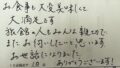 お食事も大変美味しくて
大満足です
旅館の人もみんな親切で
またお伺いしたいと思います
お世話になりました
ありがとうございます!